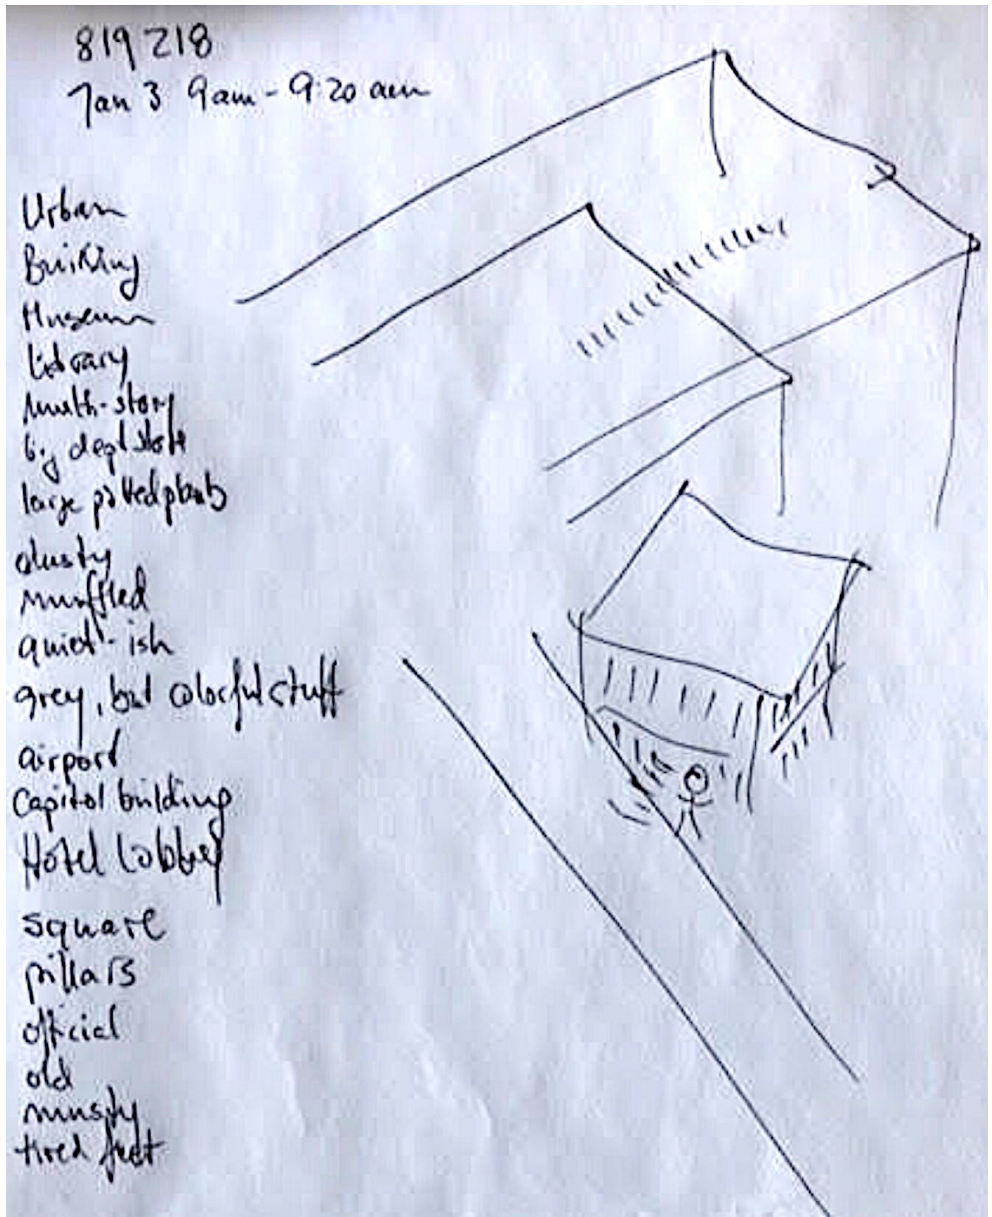 819218
Jan 3 9am - 9:20 am
Urban
Building
Museum
Library
multi-story
big dept store
large potted plants
dusty
muffled
quiet-ish
grey, but colorful stuff
airport
Capitol building
Hotel Lobby
square
pillars
official
old
musty
tired feet